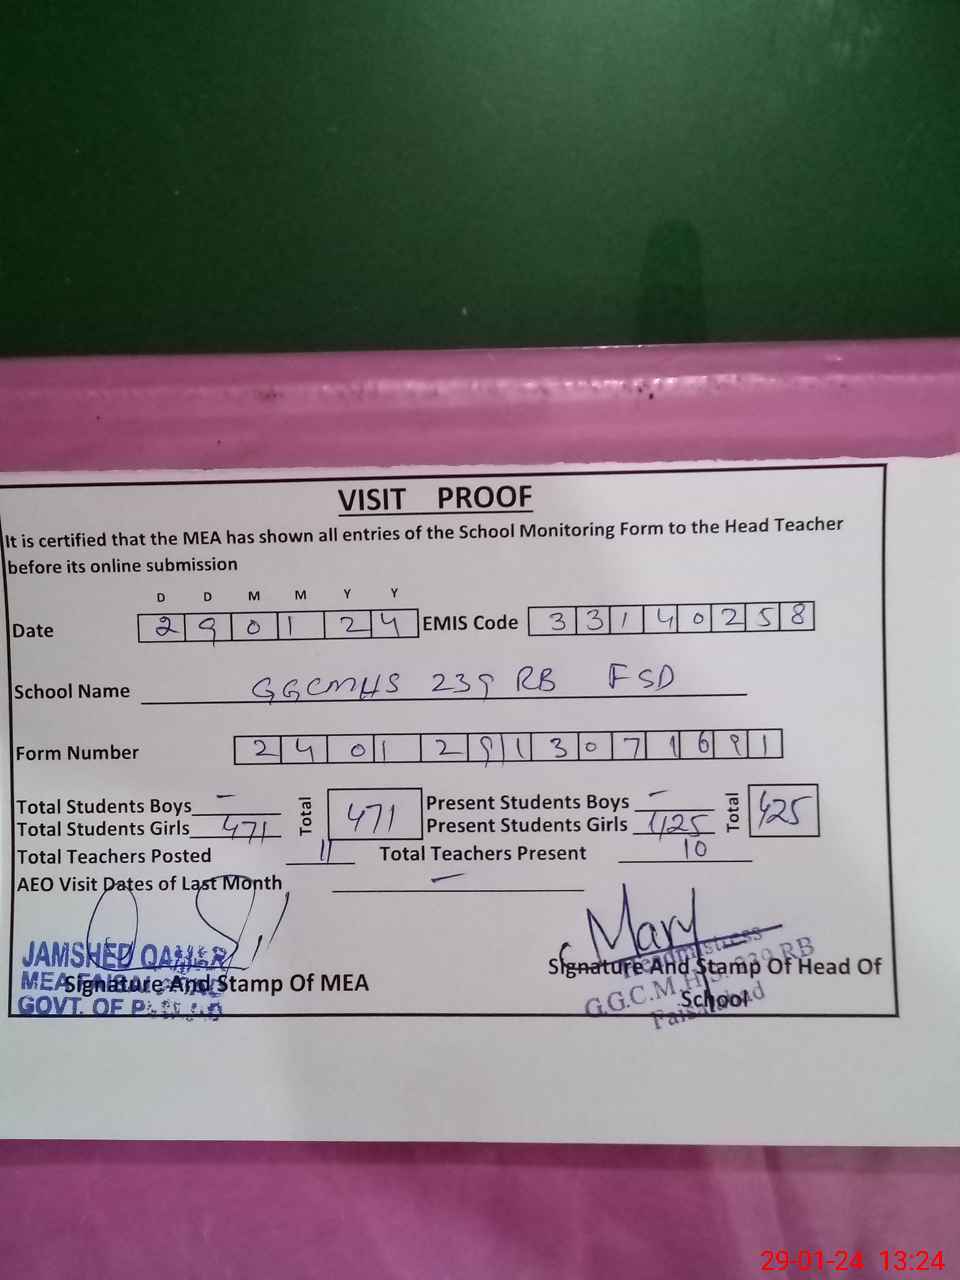 VISIT PROOF
It is certified that the MEA has shown all entries of the School Monitoring Form to the Head Teacher
before its online submission
D D M M Y Y
Date 2 9 0 1 2 4 EMIS Code 3 3 1 4 0 2 5 8
School Name GGCMHS 239 RB FSD
Form Number 2 4 0 1 2 9 1 3 0 7 1 6 9 1
Total Students Boys – Total 471 Present Students Boys – Total 425
Total Students Girls 471 Present Students Girls 425
Total Teachers Posted 11 Total Teachers Present 10
AEO Visit Dates of Last Month –
Mary
JAMSHED
Headmistress
MEA
Signature And Stamp Of MEA
Signature And Stamp Of Head Of
School
GOVT. OF
G.G.C.M.H.S. 239 RB
Faisalabad
29-01-24 13:24